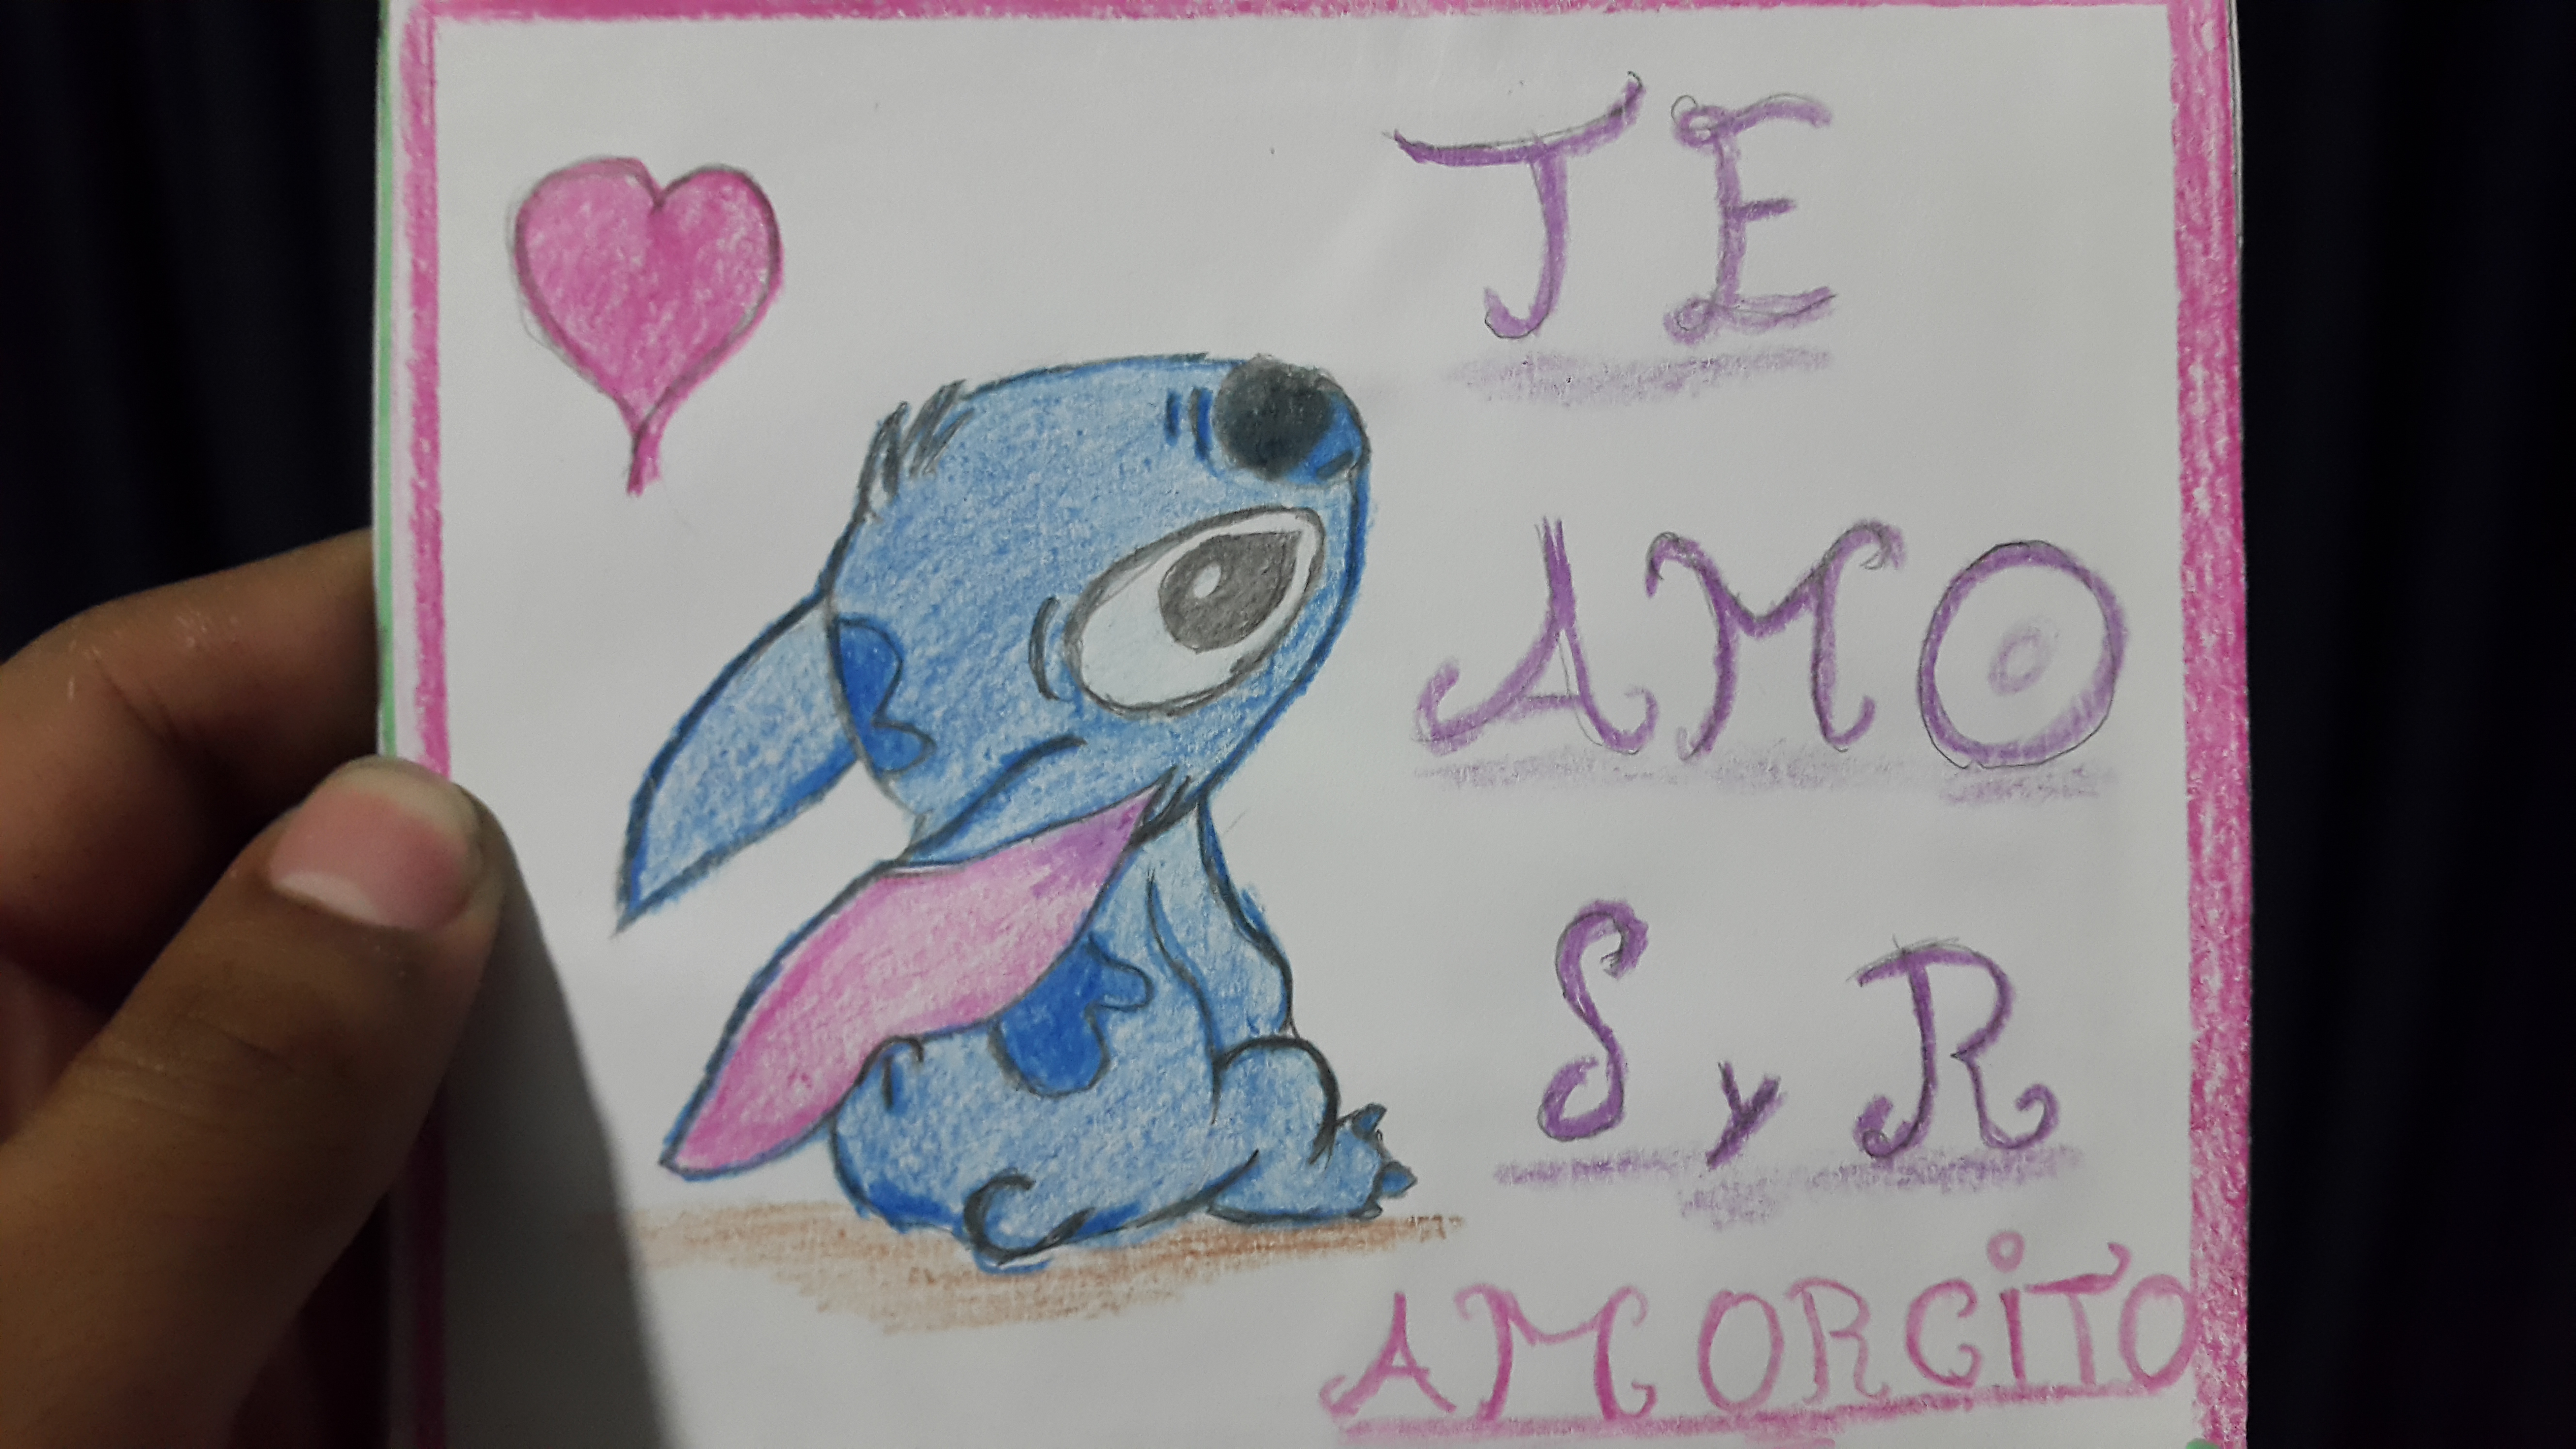 TE
AMO
S y R
AMORCITO